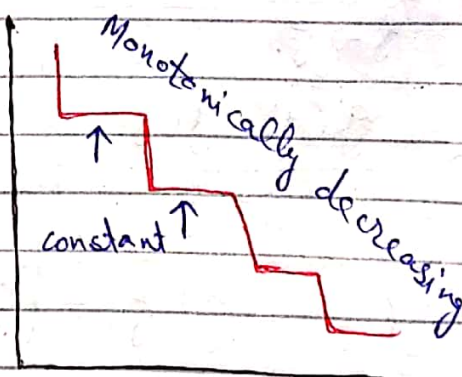 Monotonically decreasing
constant